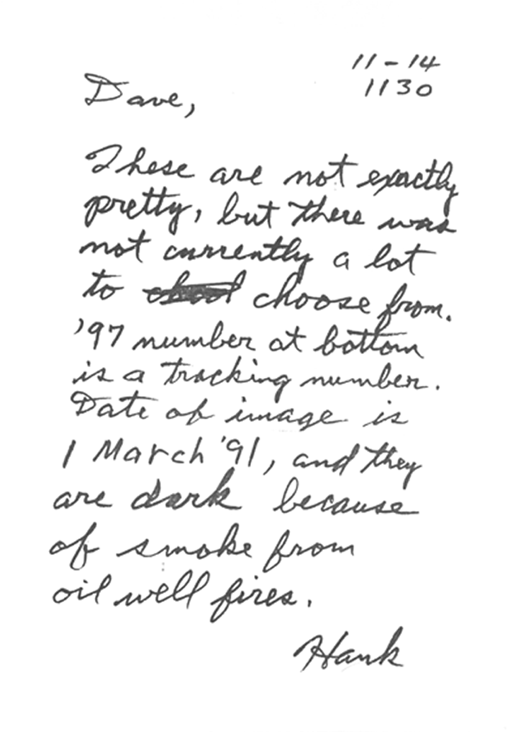 11-14
1130
Dave,
These are not exactly
pretty, but there was
not currently a lot
to choose from.
'97 number at bottom
is a tracking number.
Date of image is
1 March '91, and they
are dark because
of smoke from
oil well fires.
Hank